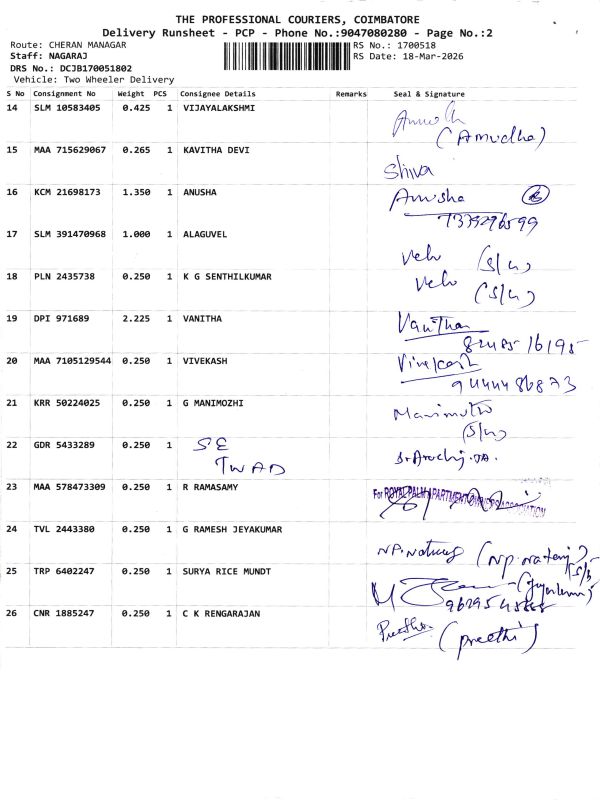 THE PROFESSIONAL COURIERS, COIMBATORE
Delivery Runsheet - PCP - Phone No.:9047080280 - Page No.:2
Route: CHERAN MANAGAR
RS No.: 1700518
Staff: NAGARAJ
RS Date: 18-Mar-2026
DRS No.: DCJB170051802
Vehicle: Two Wheeler Delivery
S No Consignment No Weight PCS Consignee Details Remarks Seal & Signature
14 SLM 10583405 0.425 1 VIJAYALAKSHMI
(Amudha)
15 MAA 715629067 0.265 1 KAVITHA DEVI
Shiva
16 KCM 21698173 1.350 1 ANUSHA Anusha
17 SLM 391470968 1.000 1 ALAGUVEL
Velu (S/w)
18 PLN 2435738 0.250 1 K G SENTHILKUMAR Velu
(S/w)
19 DPI 971689 2.225 1 VANITHA Vanitha
20 MAA 7105129544 0.250 1 VIVEKASH Vivekash
21 KRR 50224025 0.250 1 G MANIMOZHI
(S/w)
22 GDR 5433289 0.250 1 SE
TWAD
23 MAA 578473309 0.250 1 R RAMASAMY For ROYAL PALM APARTMENT OWNERS ASSOCIATION
24 TVL 2443380 0.250 1 G RAMESH JEYAKUMAR
25 TRP 6402247 0.250 1 SURYA RICE MUNDT
26 CNR 1885247 0.250 1 C K RENGARAJAN
(preethi)